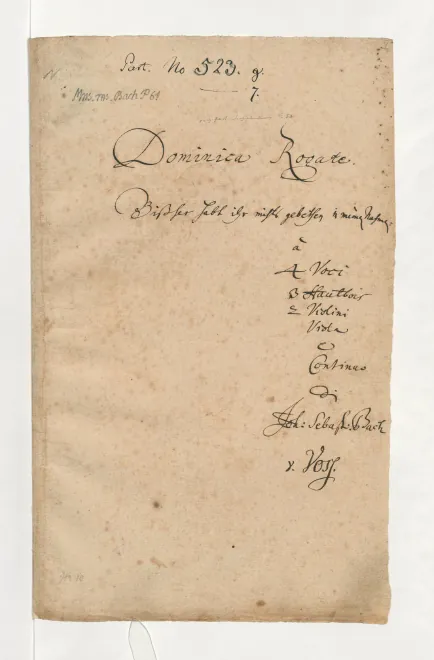 Part. No 523. g.
7.
Mus. ms. Bach P 61
Dominica Rogate.
Bißher habt ihr nichts gebethen in meinen Nahmen,
à
4 Voci
3 Hautbois
2 Violini
Viola
e
Continuo
di
Joh: Sebast: Bach
v. Voss.